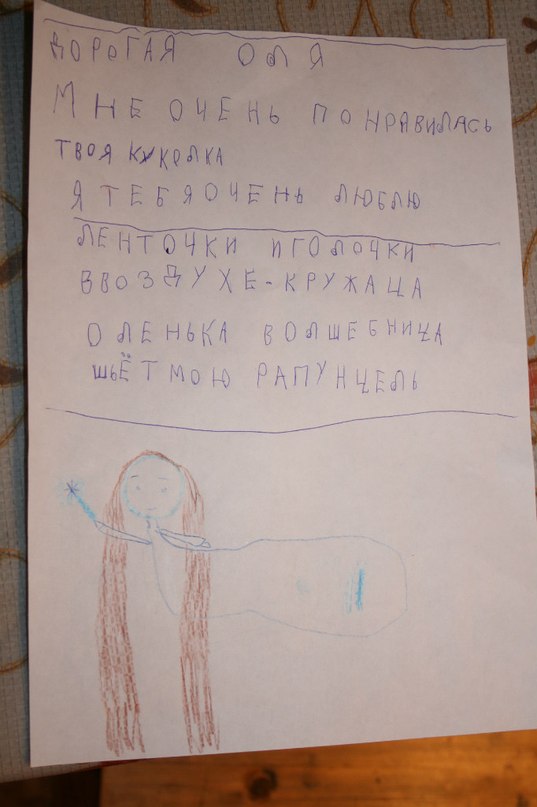 ДОРОГАЯ ОЛЯ
МНЕ ОЧЕНЬ ПОНРАВИЛАСЬ
ТВОЯ КУКОЛКА
Я ТЕБЯ ОЧЕНЬ ЛЮБЛЮ
ЛЕНТОЧКИ ИГОЛОЧКИ
ВВОЗДУХЕ-КРУЖАЦА
ОЛЕНЬКА ВОЛШЕБНИЦА
ШЬЁТ МОЮ РАПУНЦЕЛЬ